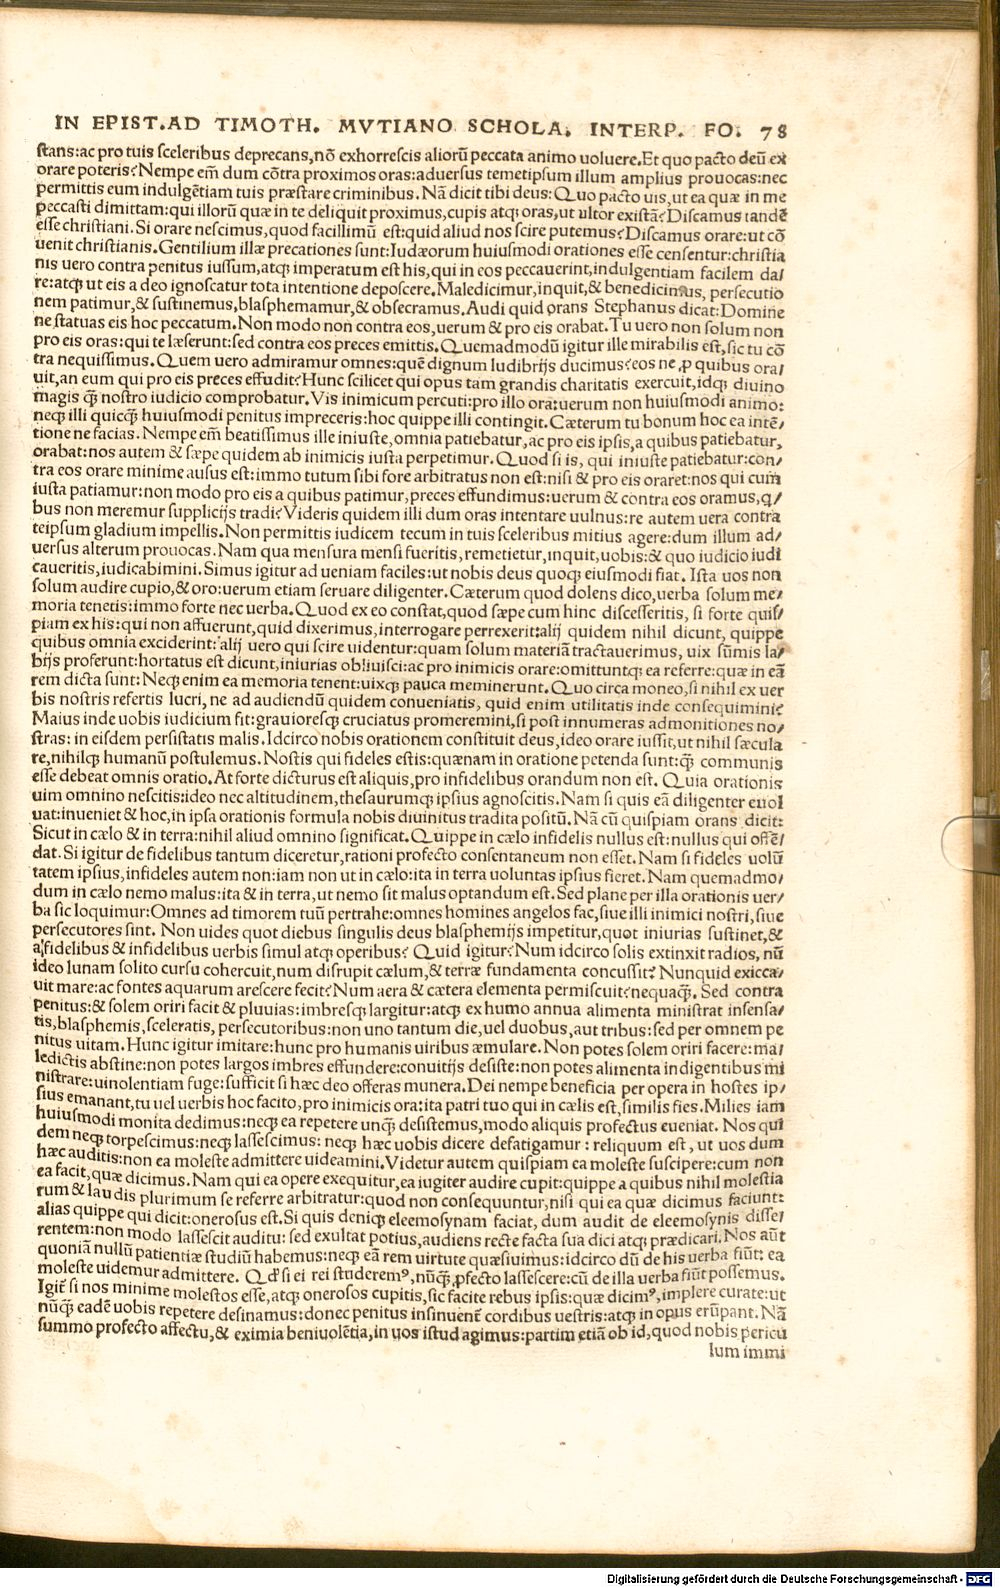 IN EPIST.AD TIMOTH. MVTIANO SCHOLA. INTERP. FO. 78
stans:ac pro tuis sceleribus deprecans,nō exhorrescis aliorū peccata animo uoluere.Et quo pacto deū ex
orare poteris? Nempe em̄ dum cōtra proximos oras:aduersus temetipsum illum amplius prouocas:nec
permittis eum indulgētiam tuis præstare criminibus. Nā dicit tibi deus: Quo pacto uis,ut ea quæ in me
peccasti dimittam:qui illorū quæ in te deliquit proximus,cupis atq; oras,ut ultor existā? Discamus tandē
esse christiani. Si orare nescimus,quod facillimū est:quid aliud nos scire putemus? Discamus orare:ut cō
uenit christianis. Gentilium illæ precationes sunt:Iudæorum huiusmodi orationes esse censentur:christia
nis uero contra penitus iussum,atq; imperatum est his,qui in eos peccauerint,indulgentiam facilem da/
re:atq; ut eis a deo ignoscatur tota intentione deposcere. Maledicimur,inquit,& benedicimus, persecutio
nem patimur,& sustinemus,blasphemamur,& obsecramus. Audi quid orans Stephanus dicat: Domine
ne statuas eis hoc peccatum. Non modo non contra eos,uerum & pro eis orabat. Tu uero non solum non
pro eis oras:qui te læserunt:sed contra eos preces emittis. Quemadmodū igitur ille mirabilis est,sic tu cō
tra nequissimus. Quem uero admiramur omnes:quē dignum ludibrijs ducimus?eos ne ,p quibus ora/
uit,an eum qui pro eis preces effudit? Hunc scilicet qui opus tam grandis charitatis exercuit,idq; diuino
magis q̄ nostro iudicio comprobatur. Vis inimicum percuti:pro illo ora:uerum non huiusmodi animo:
neq; illi quicq̄ huiusmodi penitus impreceris:hoc quippe illi contingit. Cæterum tu bonum hoc ea intē/
tione ne facias. Nempe em̄ beatissimus ille iniuste,omnia patiebatur,ac pro eis ipsis,a quibus patiebatur,
orabat:nos autem & sæpe quidem ab inimicis iusta perpetimur. Quod si is, qui iniuste patiebatur:con/
tra eos orare minime ausus est:immo tutum sibi fore arbitratus non est:nisi & pro eis oraret:nos qui cum
iusta patiamur:non modo pro eis a quibus patimur,preces effundimus:uerum & contra eos oramus,q/
bus non meremur supplicijs tradi? Videris quidem illi dum oras intentare uulnus:re autem uera contra
teipsum gladium impellis. Non permittis iudicem tecum in tuis sceleribus mitius agere:dum illum ad/
uersus alterum prouocas. Nam qua mensura mensi fueritis,remetietur,inquit,uobis:& quo iudicio iudi
caueritis,iudicabimini. Simus igitur ad ueniam faciles:ut nobis deus quoq; eiusmodi fiat. Ista uos non
solum audire cupio,& oro:uerum etiam seruare diligenter. Cæterum quod dolens dico,uerba solum me/
moria tenetis:immo forte nec uerba. Quod ex eo constat,quod sæpe cum hinc discesseritis, si forte quis/
piam ex his:qui non affuerunt,quid dixerimus,interrogare perrexerit:alij quidem nihil dicunt, quippe
quibus omnia exciderint: alij uero qui scire uidentur:quam solum materiā tractauerimus, uix sūmis la/
bijs proferunt:hortatus est dicunt,iniurias obliuisci:ac pro inimicis orare:omittuntq; ea referre:quæ in eā
rem dicta sunt: Neq; enim ea memoria tenent:uixq; pauca meminerunt. Quo circa moneo,si nihil ex uer
bis nostris refertis lucri, ne ad audiendū quidem conueniatis, quid enim utilitatis inde consequimini?
Maius inde uobis iudicium fit:grauioresq; cruciatus promeremini,si post innumeras admonitiones no/
stras: in eisdem persistatis malis. Idcirco nobis orationem constituit deus,ideo orare iussit,ut nihil sæcula
re,nihilq; humanū postulemus. Nostis qui fideles estis:quænam in oratione petenda sunt:q̄ communis
esse debeat omnis oratio. At forte dicturus est aliquis,pro infidelibus orandum non est. Quia orationis
uim omnino nescitis:ideo nec altitudinem,thesaurumq; ipsius agnoscitis. Nam si quis eā diligenter euol
uat:inueniet & hoc,in ipsa orationis formula nobis diuinitus tradita positū. Nā cū quispiam orans dicit:
Sicut in cælo & in terra:nihil aliud omnino significat. Quippe in cælo infidelis nullus est:nullus qui offē/
dat. Si igitur de fidelibus tantum diceretur,rationi profecto consentaneum non esset. Nam si fideles uolū
tatem ipsius,infideles autem non:iam non ut in cælo:ita in terra uoluntas ipsius fieret. Nam quemadmo/
dum in cælo nemo malus:ita & in terra,ut nemo sit malus optandum est. Sed plane per illa orationis uer/
ba sic loquimur:Omnes ad timorem tuū pertrahe:omnes homines angelos fac,siue illi inimici nostri,siue
persecutores sint. Non uides quot diebus singulis deus blasphemijs impetitur,quot iniurias sustinet,&
a fidelibus & infidelibus uerbis simul atq; operibus? Quid igitur? Num idcirco solis extinxit radios, nū
ideo lunam solito cursu cohercuit,num disrupit cælum,& terræ fundamenta concussit? Nunquid exicca/
uit mare:ac fontes aquarum arescere fecit? Num aera & cætera elementa permiscuit?nequaq̄. Sed contra
penitus:& solem oriri facit & pluuias:imbresq; largitur:atq; ex humo annua alimenta ministrat insensa/
tis,blasphemis,sceleratis, persecutoribus:non uno tantum die,uel duobus,aut tribus:sed per omnem pe
nitus uitam. Hunc igitur imitare:hunc pro humanis uiribus æmulare. Non potes solem oriri facere:ma/
ledictis abstine:non potes largos imbres effundere:conuitijs desiste:non potes alimenta indigentibus mi
nistrare:uinolentiam fuge:sufficit si hæc deo offeras munera. Dei nempe beneficia per opera in hostes ip/
sius emanant,tu uel uerbis hoc facito,pro inimicis ora:ita patri tuo qui in cælis est,similis fies. Milies iam
huiusmodi monita dedimus:neq; ea repetere unq̄ desistemus,modo aliquis profectus eueniat. Nos qui
dem neq; torpescimus:neq; lassescimus: neq; hæc uobis dicere defatigamur : reliquum est, ut uos dum
hæc auditis:non ea moleste admittere uideamini. Videtur autem quispiam ea moleste suscipere:cum non
ea facit,quæ dicimus. Nam qui ea opere exequitur,ea iugiter audire cupit:quippe a quibus nihil molestia
rum & laudis plurimum se referre arbitratur:quod non consequuntur,nisi qui ea quæ dicimus faciunt:
alias quippe qui dicit:onerosus est. Si quis deniq; eleemosynam faciat, dum audit de eleemosynis disse/
rentem:non modo lassescit auditu: sed exultat potius,audiens recte facta sua dici atq; prædicari. Nos aūt
quoniā nullū patientiæ studiū habemus:neq; eā rem uirtute quæsiuimus:idcirco dū de his uerba fiūt: ea
moleste uidemur admittere. Qd si ei rei studerem⁹,nūq̄ ,pfecto lassescere:cū de illa uerba fiūt possemus.
Igit̄ si nos minime molestos esse,atq; onerosos cupitis,sic facite rebus ipsis:quæ dicim⁹,implere curate:ut
nūq̄ eadē uobis repetere desinamus:donec penitus insinuent̄ cordibus uestris:atq; in opus erūpant. Nā
summo profecto affectu,& eximia beniuolētia,in uos istud agimus:partim etiā ob id,quod nobis pericu
lum immi
Digitalisierung gefördert durch die Deutsche Forschungsgemeinschaft - DFG